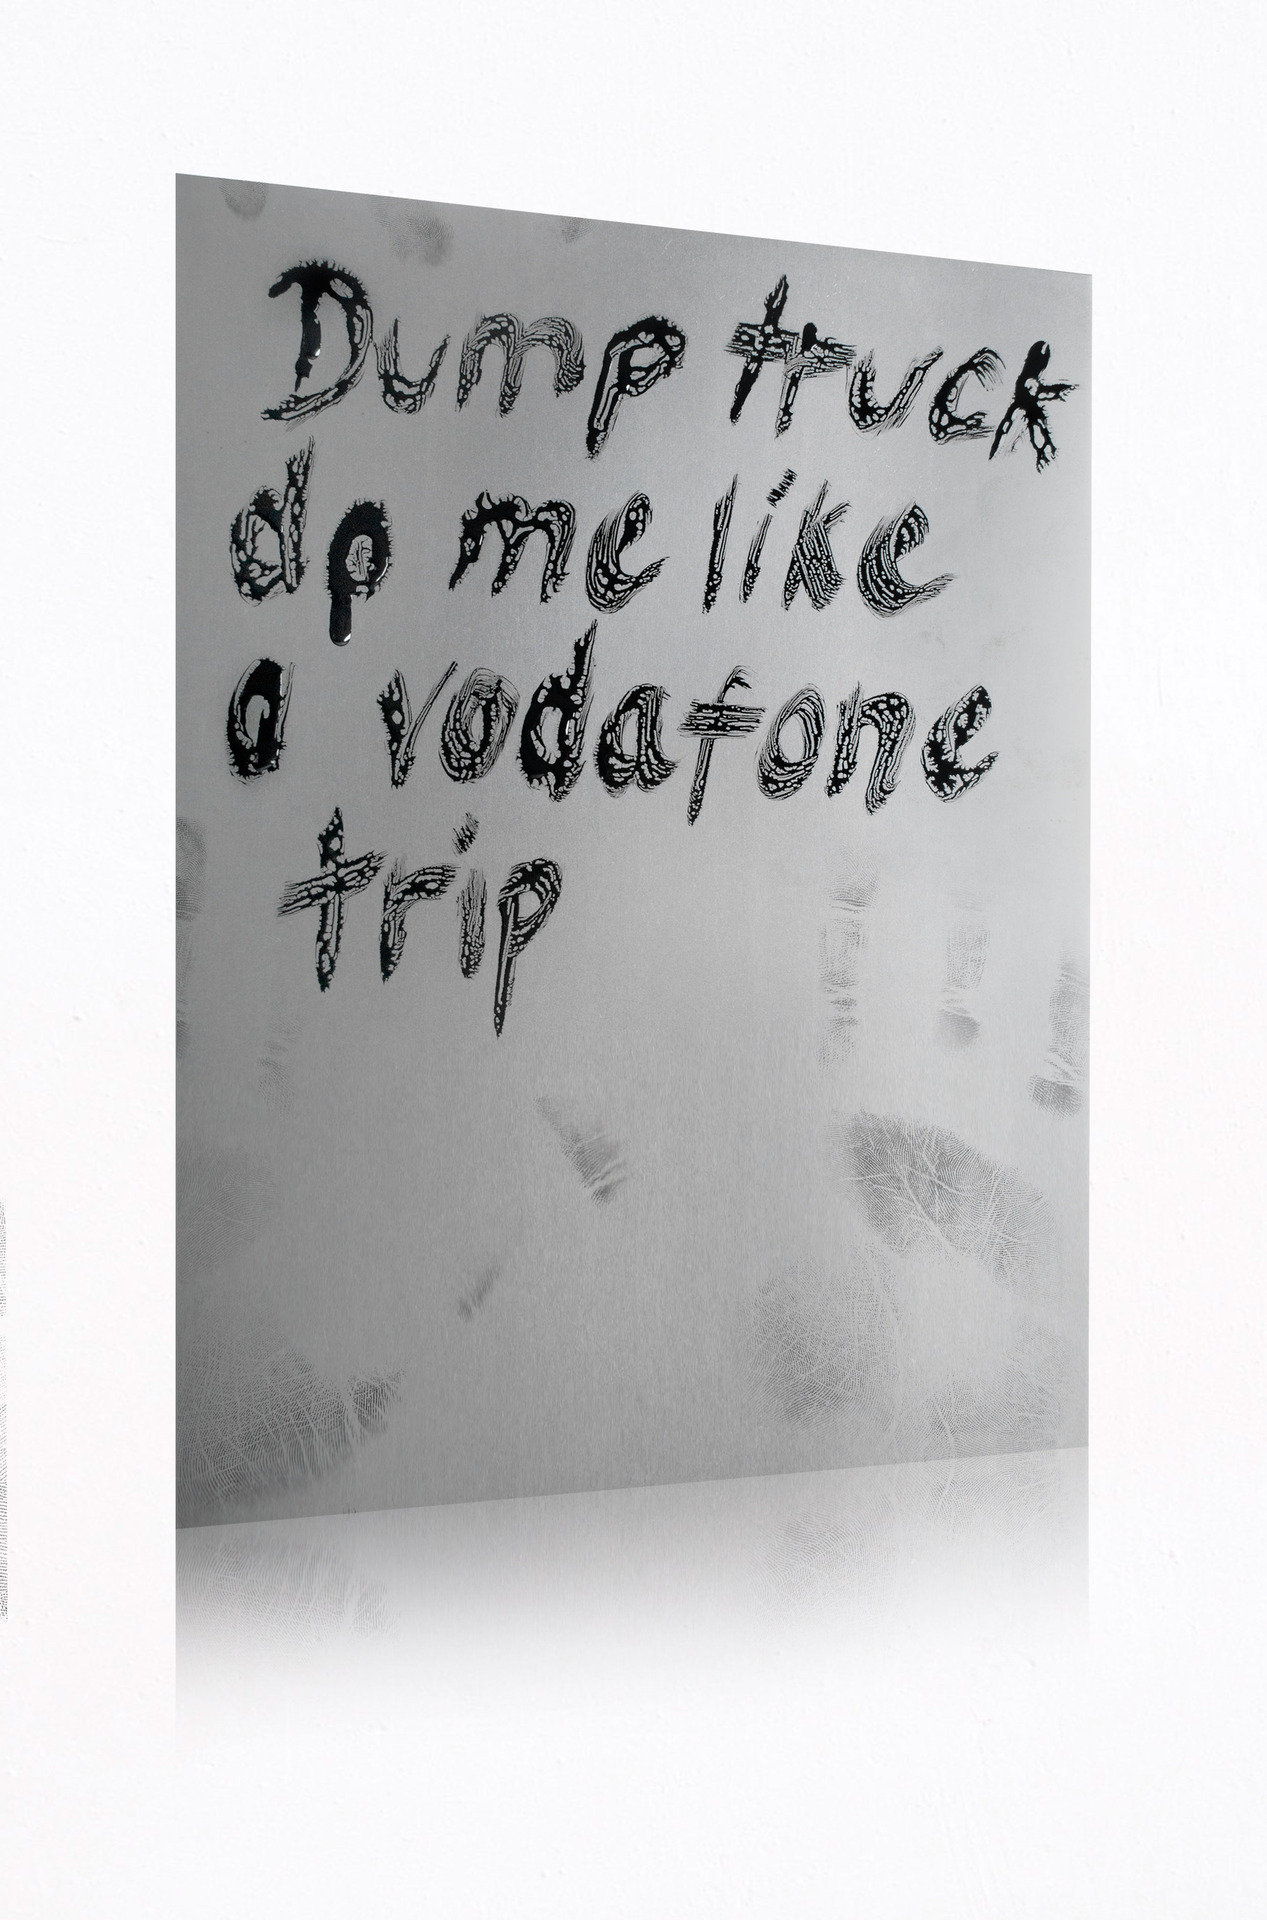 Dump truck
dp me like
a vodafone
trip